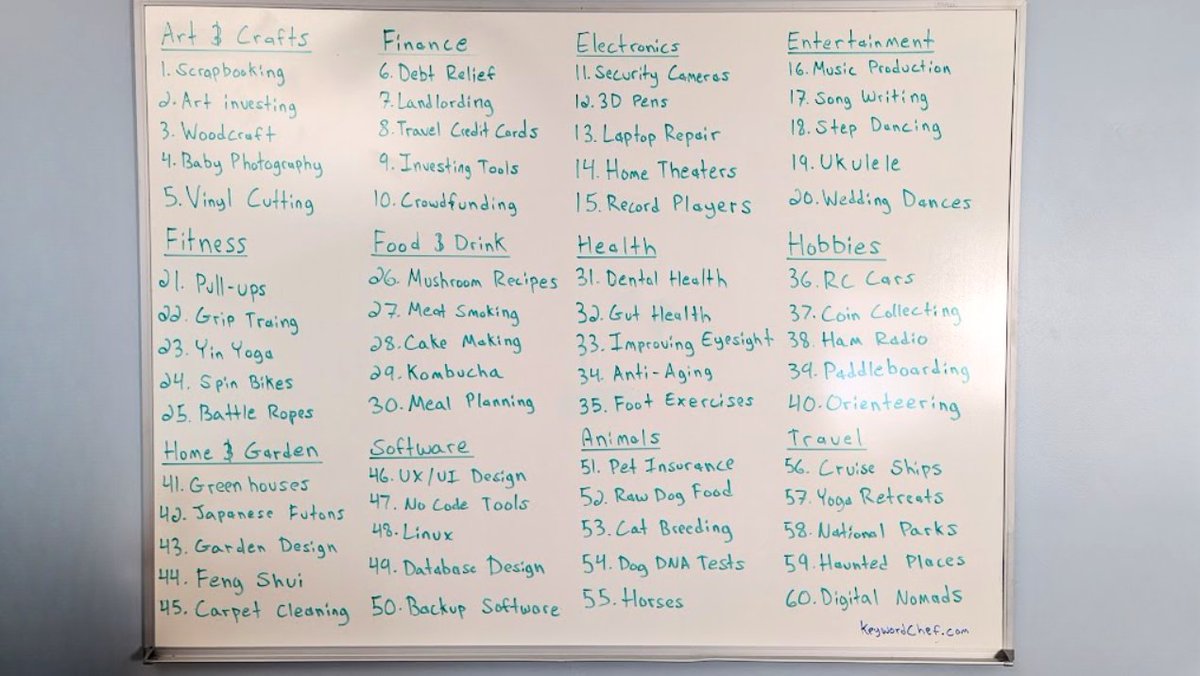 Art & Crafts
1. Scrapbooking
2. Art investing
3. Woodcraft
4. Baby Photography
5. Vinyl Cutting
Finance
6. Debt Relief
7. Landlording
8. Travel Credit Cards
9. Investing Tools
10. Crowdfunding
Electronics
11. Security Cameras
12. 3D Pens
13. Laptop Repair
14. Home Theaters
15. Record Players
Entertainment
16. Music Production
17. Song Writing
18. Step Dancing
19. Ukulele
20. Wedding Dances
Fitness
21. Pull-ups
22. Grip Traing
23. Yin Yoga
24. Spin Bikes
25. Battle Ropes
Food & Drink
26. Mushroom Recipes
27. Meat Smoking
28. Cake Making
29. Kombucha
30. Meal Planning
Health
31. Dental Health
32. Gut Health
33. Improving Eyesight
34. Anti-Aging
35. Foot Exercises
Hobbies
36. RC Cars
37. Coin Collecting
38. Ham Radio
39. Paddleboarding
40. Orienteering
Home & Garden
41. Greenhouses
42. Japanese Futons
43. Garden Design
44. Feng Shui
45. Carpet Cleaning
Software
46. UX/UI Design
47. No Code Tools
48. Linux
49. Database Design
50. Backup Software
Animals
51. Pet Insurance
52. Raw Dog Food
53. Cat Breeding
54. Dog DNA Tests
55. Horses
Travel
56. Cruise Ships
57. Yoga Retreats
58. National Parks
59. Haunted Places
60. Digital Nomads
KeywordChef.com